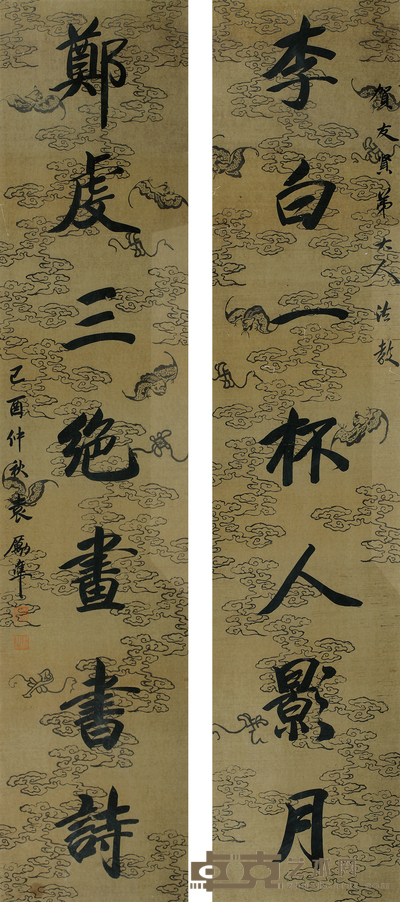 賀友賢弟大人法教
李白一杯人影月
鄭虔三絕畫書詩
己酉仲秋袁勵準